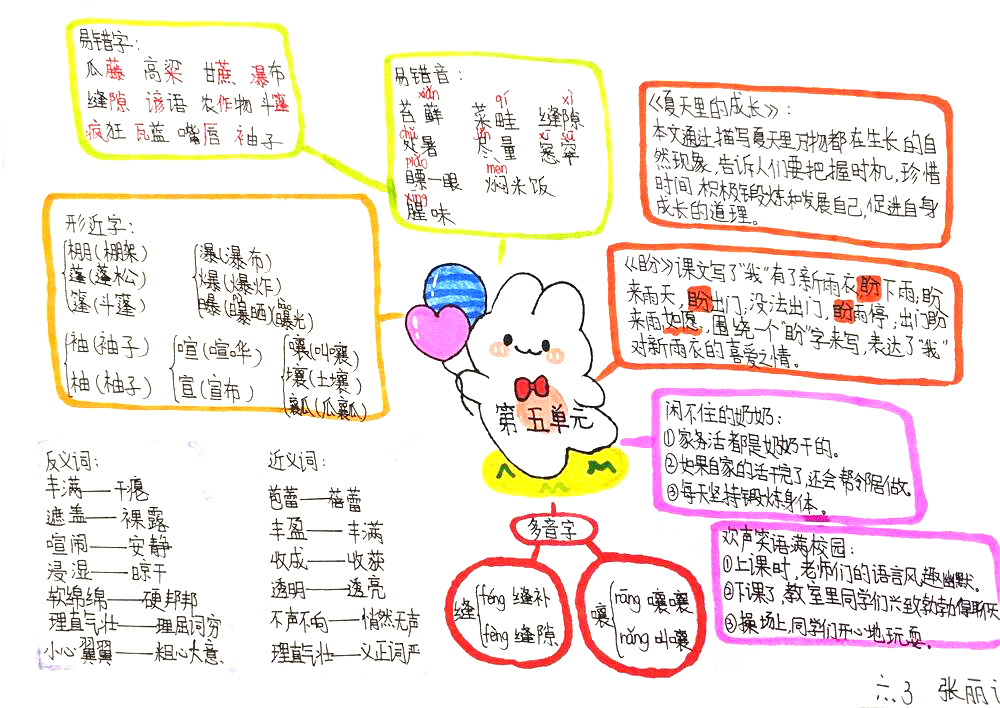 易错字:
瓜藤 高梁 甘蔗 瀑布
缝隙 该语 农作物 斗篷
疯狂 瓦蓝 嘴唇 袖子
易错音:
xiǎn
苔藓 菜畦 缝隙
qí xì
chǔ jìn xī sū
处暑 尽量 窸窣
piǎo mèn
瞟一眼 焖米饭
xīng
腥味
《夏天里的成长》:
本文通过描写夏天里万物都在生长的自
然现象,告诉人们要把握时机,珍惜
时间 积极锻炼和发展自己,促进自身
成长的道理。
形近字:
棚(棚架)
蓬(蓬松)
篷(斗篷)
瀑(瀑布)
爆(爆炸)
曝(曝晒)(曝光)
袖(袖子)
柚(柚子)
喧(喧哗)
宣(宣布)
嚷(叫嚷)
壤(土壤)
瓤(瓜瓤)
《盼》课文写了“我”有了新雨衣,盼下雨;盼
来雨天,盼出门;没法出门,盼雨停;出门盼
来雨如愿,围绕一个“盼”字来写,表达了“我”
对新雨衣的喜爱之情。
第五单元
闲不住的奶奶:
①家务活都是奶奶干的。
②如果自家的活干完了还会帮邻居做。
③每天坚持锻炼身体。
欢声笑语满校园:
①上课时,老师们的语言风趣幽默。
②下课了,教室里同学们兴致勃勃得聊天
③操场上,同学们开心地玩耍。
多音字
缝
féng 缝补
fèng 缝隙
嚷
rāng 嚷嚷
rǎng 叫嚷
反义词:
丰满——干瘪
遮盖——裸露
喧闹——安静
浸湿——晾干
软绵绵——硬邦邦
理直气壮——理屈词穷
小心翼翼——粗心大意
近义词:
苞蕾——蓓蕾
丰盈——丰满
收成——收获
透明——透亮
不声不响——悄然无声
理直气壮——义正词严
六.3 张丽